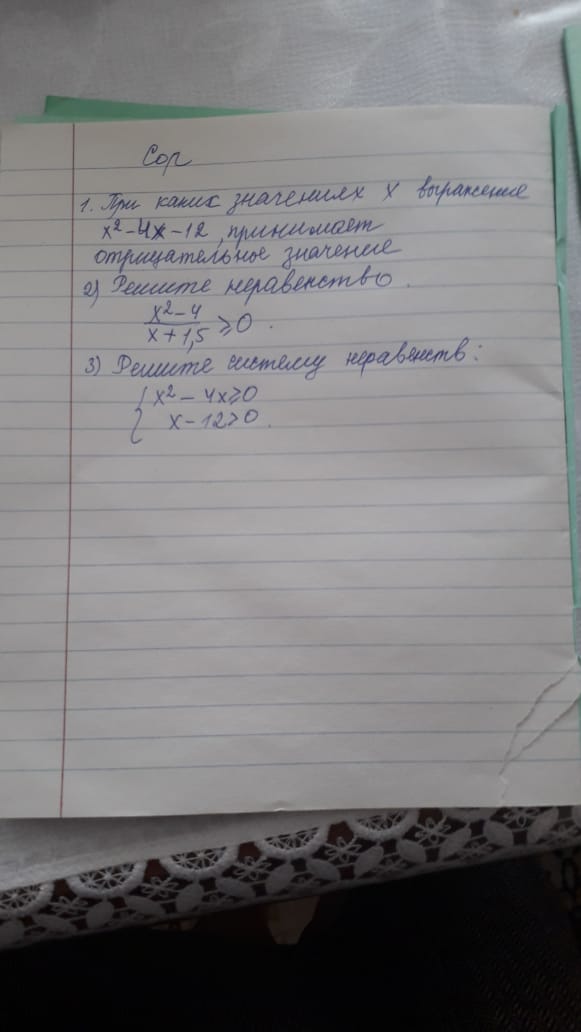 Сор
1. При каких значениях х выражение
x²-4x-12, принимает
отрицательное значение
2) Решите неравенство.
x²-4
x+1,5 ≥0.
3) Решите систему неравенств:
{ x²-4x≥0
x-12>0.